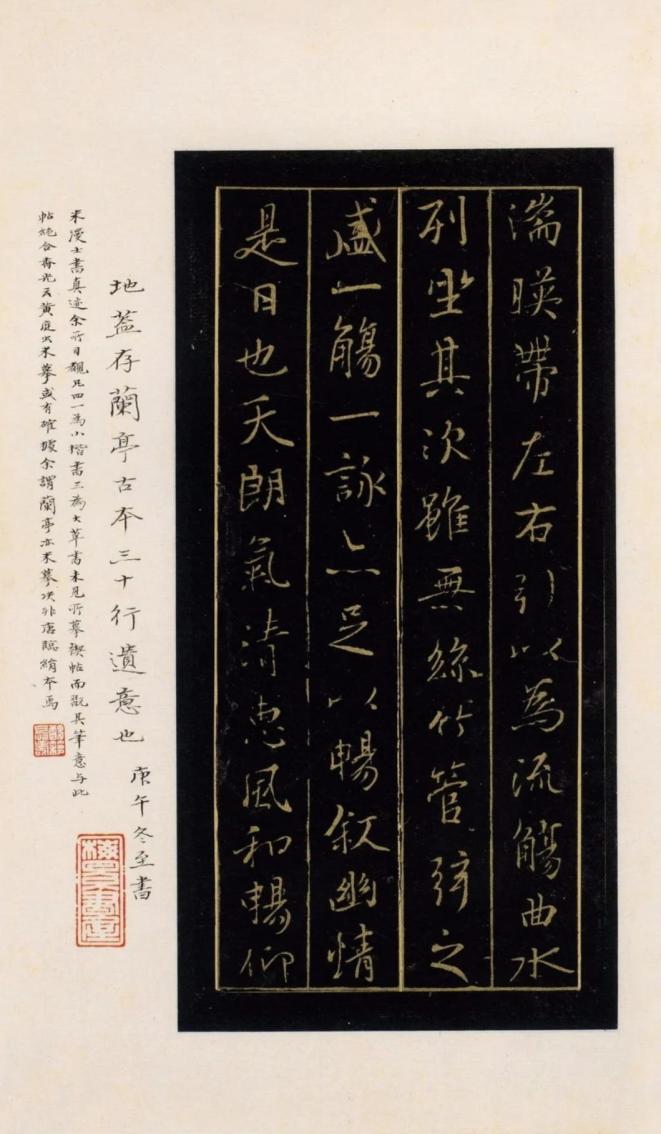 湍暎帶左右引以為流觴曲水
列坐其次雖無絲竹管弦之
盛一觴一詠亦足以暢叙幽情
是日也天朗氣清惠風和暢仰
地蓋存蘭亭古本三十行遺意也
庚午冬至書
米漫士書真迹余所目覩凡四一為小楷書三為大草書未見所摹禊帖而觀其筆意与此
帖純合齊光云黄庭出米摹或有確據余謂蘭亭亦米摹决非唐臨絹本焉